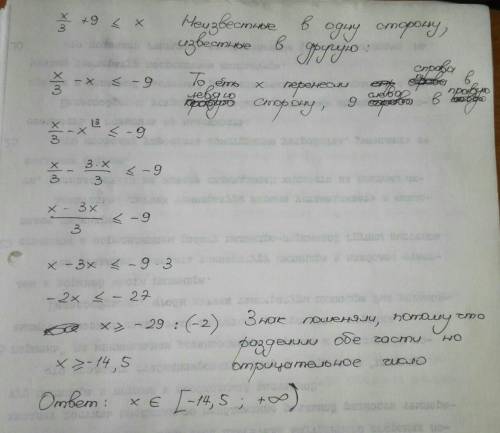 x/3 + 9 ≤ x Неизвестные в одну сторону,
известные в другую:
x/3 - x ≤ -9 То есть x перенесли справа в
левую сторону, 9 слева в правую
x/3 - x^{|3} ≤ -9
x/3 - 3·x/3 ≤ -9
x - 3x/3 ≤ -9
x - 3x ≤ -9·3
-2x ≤ -27
x ≥ -29 : (-2) Знак поменяли, потому что
разделили обе части на
x ≥ -14,5 отрицательное число
Ответ: x ∈ [-14,5 ; +∞)